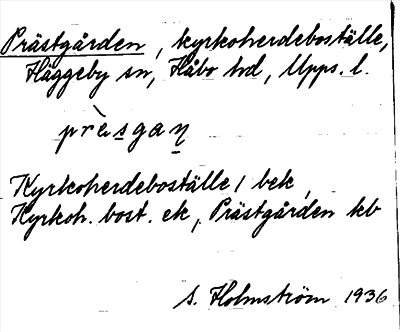 Prästgården, kyrkoherdeboställe,
Häggeby sn, Håbo hd, Upps. l.
prèsgaṉ
Kyrkoherdeboställe / bek,
Kyrkoh. bost. ek, Prästgården kb
S. Holmström 1936